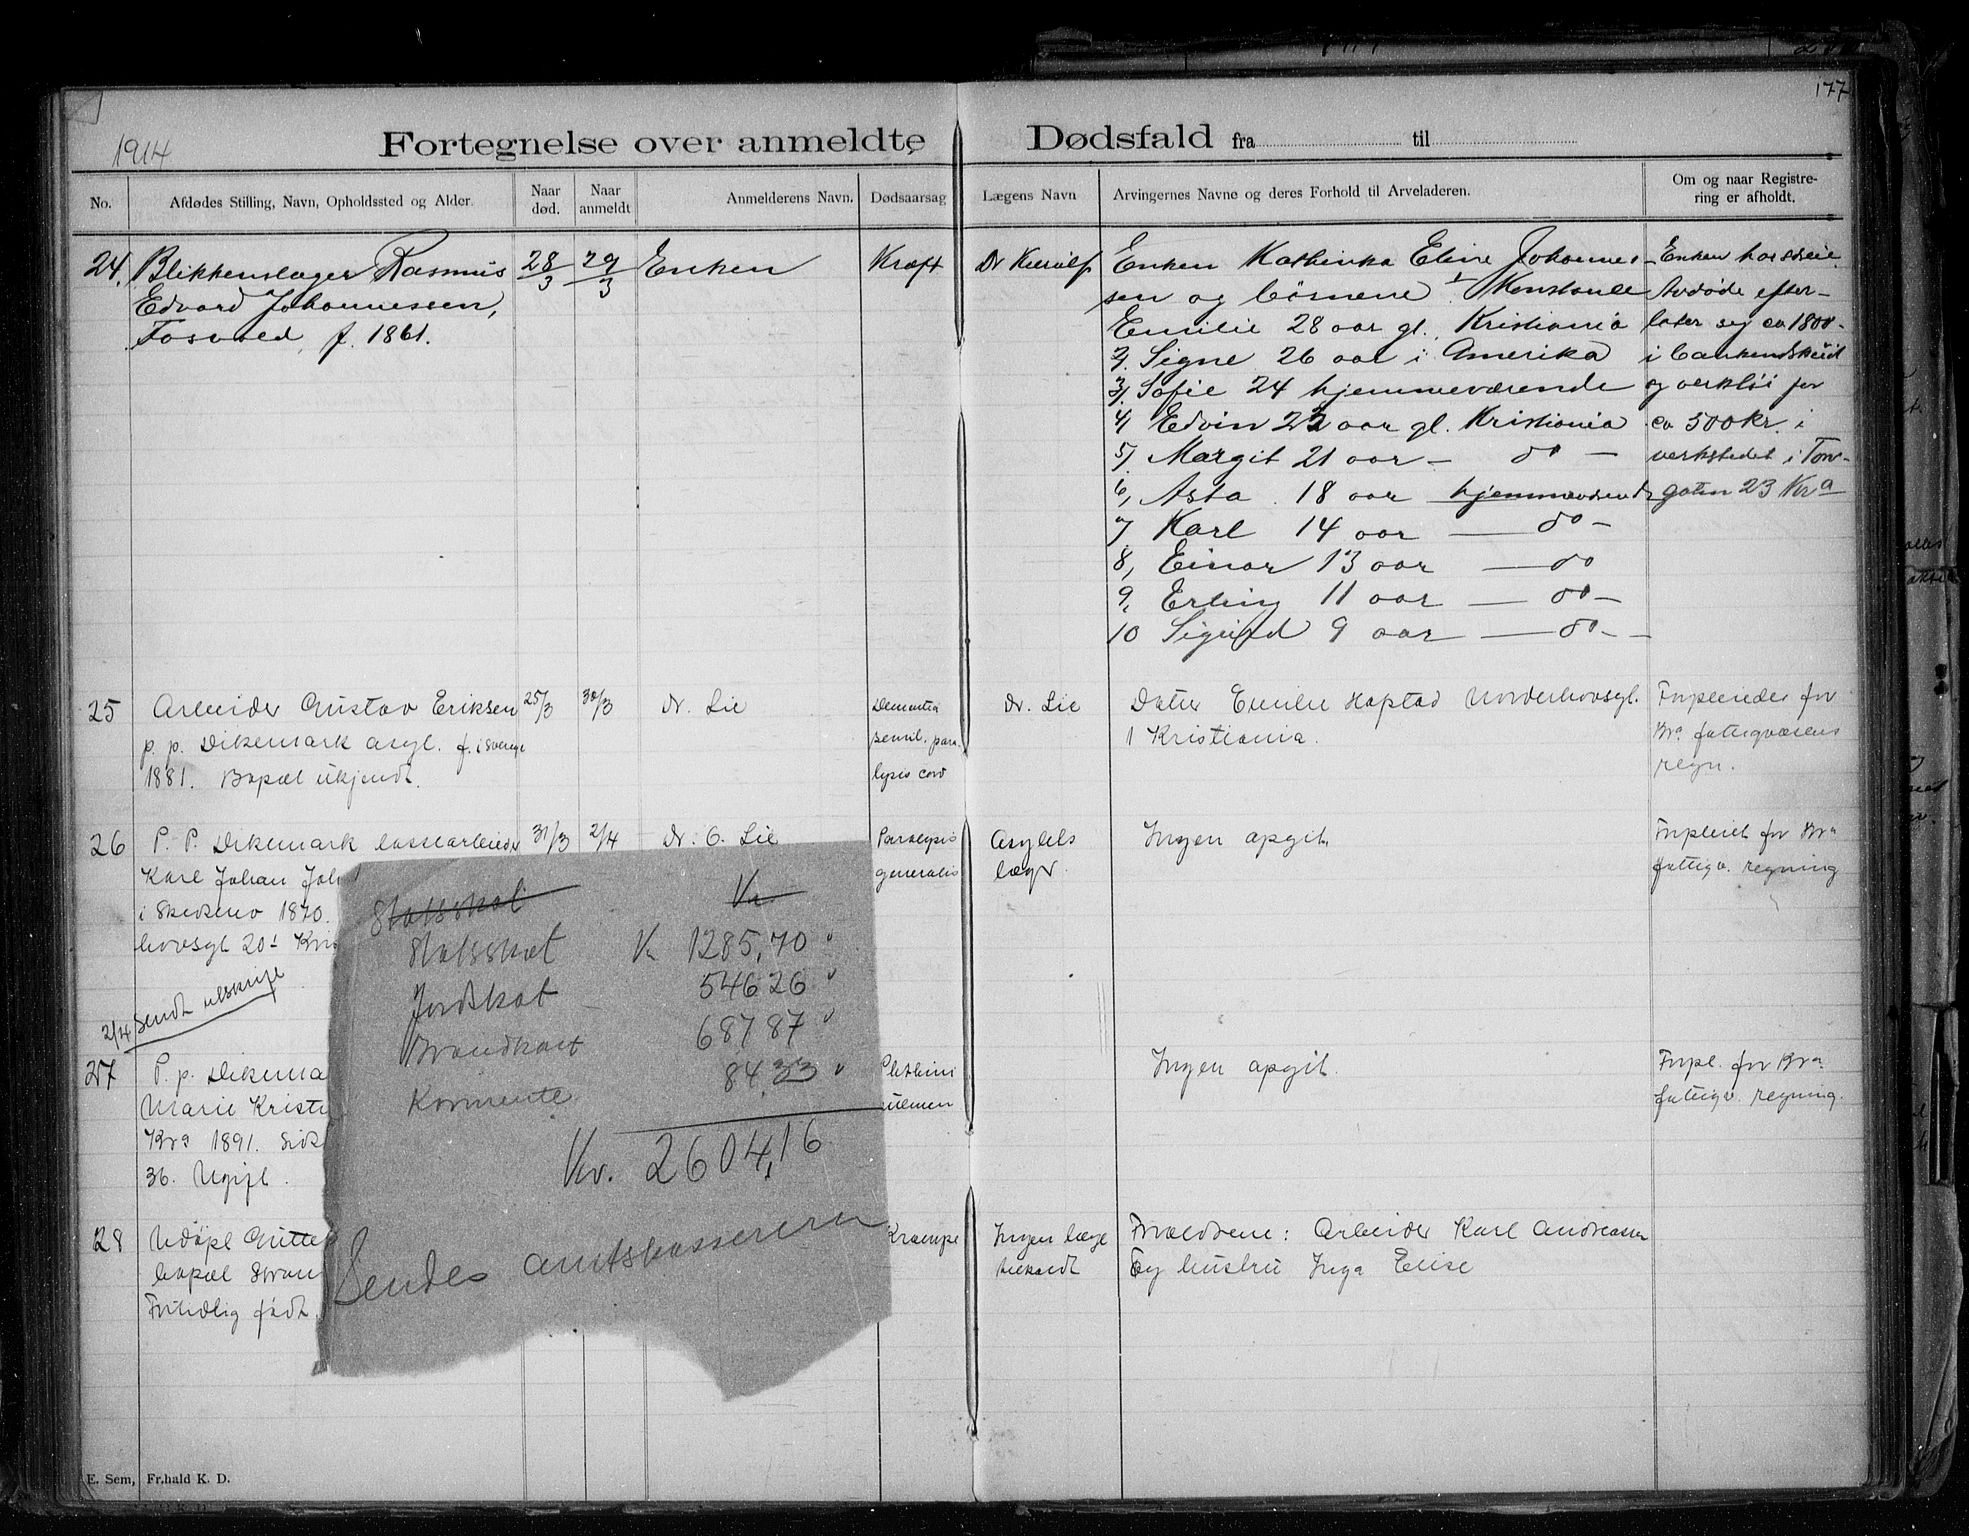 177
1914
Fortegnelse over anmeldte Dødsfald fra til
No.
Afdødes Stilling, Navn, Opholdssted og Alder.
Naar død.
Naar anmeldt
Anmelderens Navn.
Dødsaarsag
Lægens Navn
Arvingernes Navne og deres Forhold til Arveladeren.
Om og naar Registre-
ring er afholdt.
24. Blikkenslager Rasmus
Edvard Johannessen,
f. 1861.
28/3
29/3
Enken
Kræft
Dr
Enken Kathinka Eline Johannes-
sen og børnene 1.
Emilie 28 aar gl. Kristiania
2, Signe 26 aar i Amerika
3, Sofie 24 hjemmeværende
4, Edvin 22 aar gl. Kristiania
5, Margit 21 aar - do -
6, Asta 18 aar
7, Karl 14 aar - do -
8, Einar 13 aar - do
9, Erling 11 aar - do -
10 Sigurd 9 aar - do -
Enken
Avdøde efter-
later sig ca 1800-
i
og verktöi for
ca 500 kr. i
verkstedet i Torv-
gaten 23 Kra
25 Arbeider Gustav Eriksen
p. p. Dikemark asyl. f. i Sverige
1881. Bopæl ukjendt.
25/3
30/3
Dr. Lie
Dementia
senil. para-
lysis
Dr. Lie
Datter Norderhovsgt.
1 Kristiania.
for
Kra fattigvæsens
regn.
26 P. P. Dikemark
Karl Johan
i 1870.
hovsgt 20
31/3
2/4
Dr. O. Lie
Paralysis
generalis
Asylets
læge
Ingen opgit.
Forpleiet for Kra
fattigv. regning
2/4 Sendt utskrift
27 P. p.
Marie
Kra 1891.
36. Ugift.
Ingen opgit.
Forpl. for Kra
fattigv. regning.
28 Udøpt
bopæl
født.
Krampe
Ingen læge
Forældrene: Arbeider Karl Andreassen
og hustru Inga Elise
Statsskat Kr
Statsskat Kr 1285,70
Jordskat 546 26
687 87
84 33
Kr. 2604,16
Sendes amtskassereren
E. Sem, Fr.hald K. D.